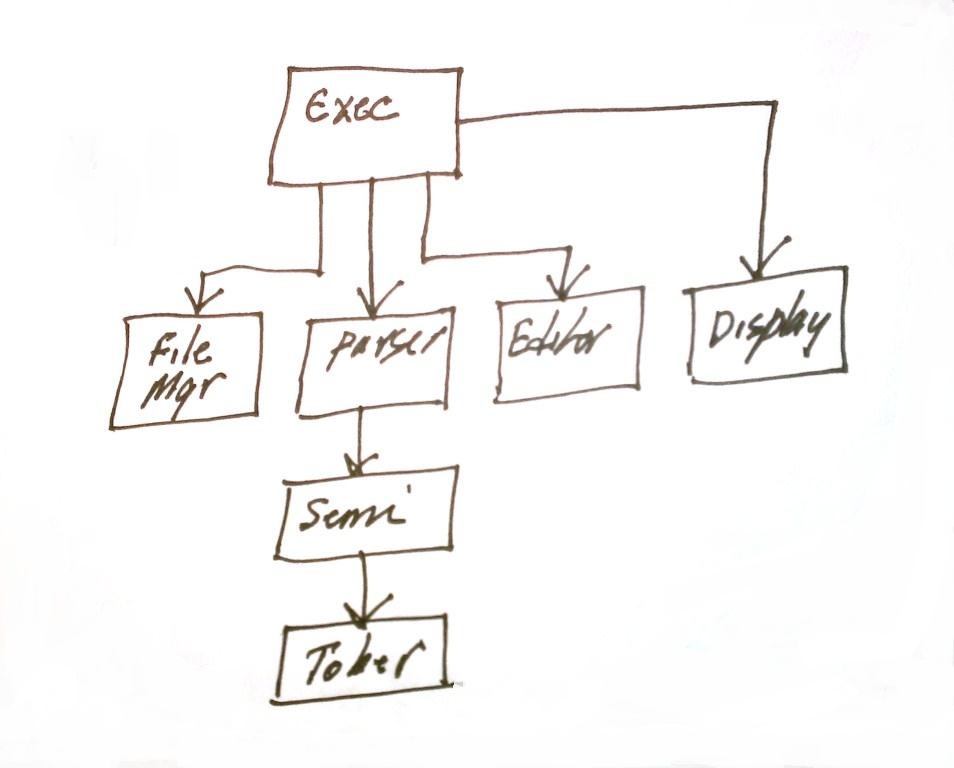 Exec
File
Mgr
Parser
Editor
Display
Semi
Toker